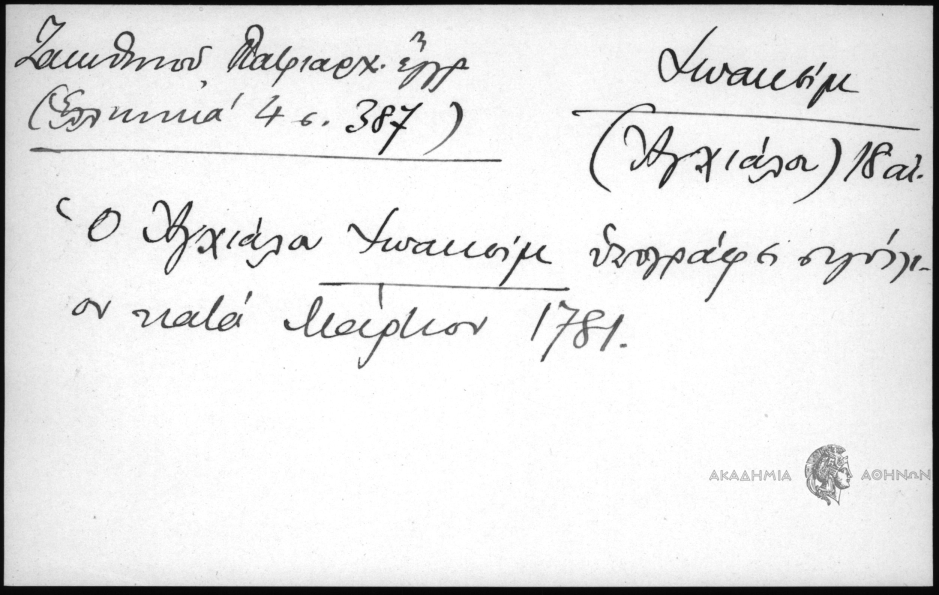 Ζακυθηνοῦ Πατριαρχ. ἔγγρ
(Ἑλληνικά 4 σ. 387)
Ἰωακείμ
(Ἀγχιάλου) 18 αἰ.
Ὁ Ἀγχιάλου Ἰωακείμ ὑπογράφει σιγίλλι-
ον κατά Μάρτιον 1781.
ΑΚΑΔΗΜΙΑ ΑΘΗΝΩΝ